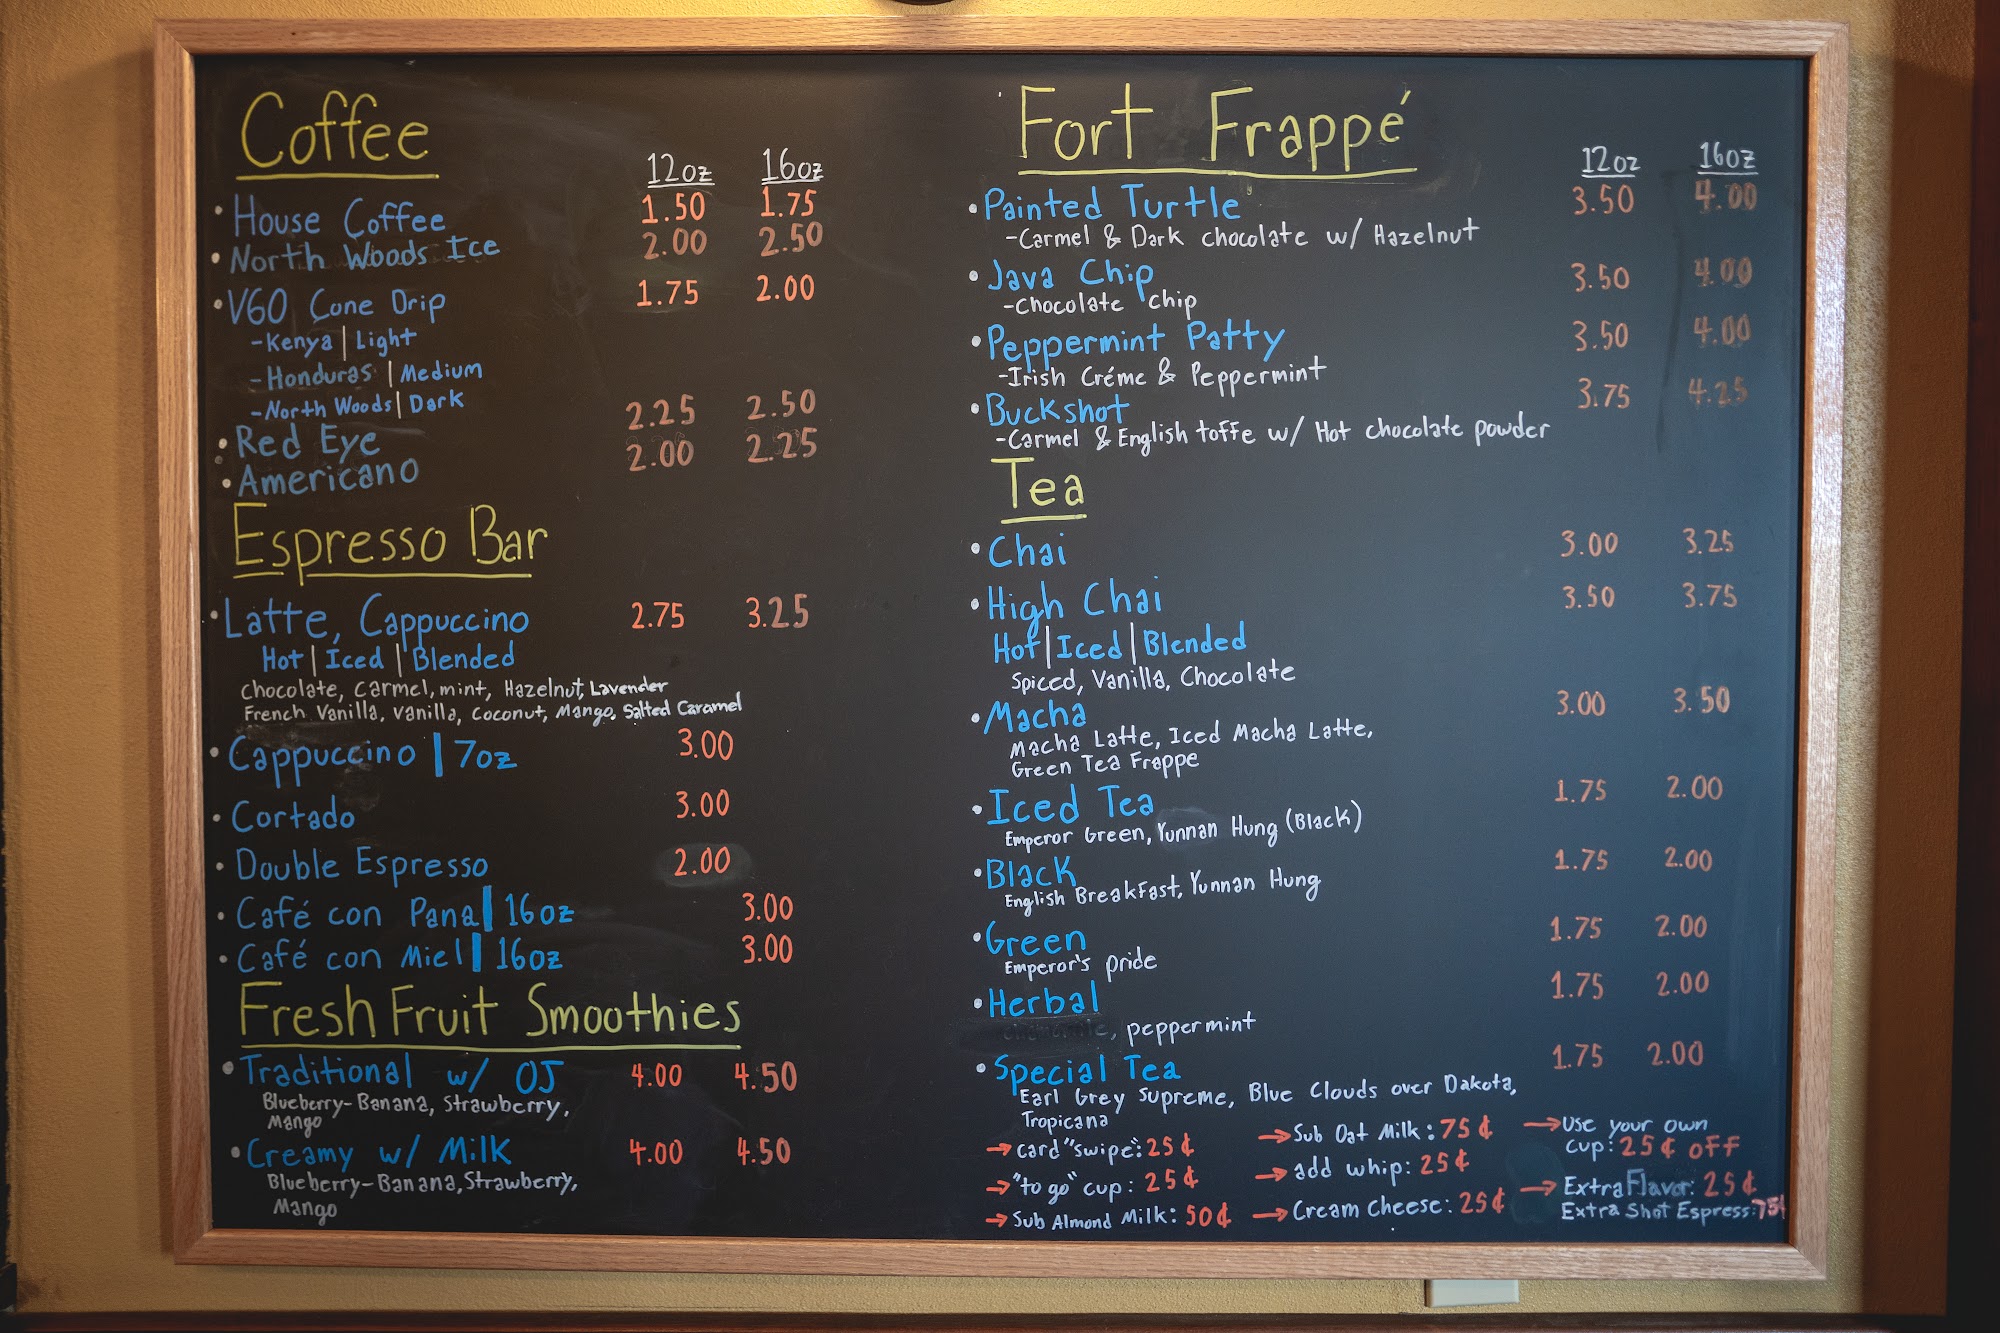 Coffee
12oz 16oz
• House Coffee 1.50 1.75
• North Woods Ice 2.00 2.50
• V60 Cone Drip 1.75 2.00
-Kenya | Light
-Honduras | Medium
-North Woods | Dark
• Red Eye 2.25 2.50
• Americano 2.00 2.25
Espresso Bar
• Latte, Cappuccino 2.75 3.25
Hot | Iced | Blended
Chocolate, Carmel, mint, Hazelnut, Lavender
French Vanilla, Vanilla, Coconut, Mango, Salted Caramel
• Cappuccino | 7oz 3.00
• Cortado 3.00
• Double Espresso 2.00
• Café con Pana | 16oz 3.00
• Café con Miel | 16oz 3.00
Fresh Fruit Smoothies
• Traditional w/ OJ 4.00 4.50
Blueberry-Banana, Strawberry,
Mango
• Creamy w/ Milk 4.00 4.50
Blueberry-Banana, Strawberry,
Mango
Fort Frappé
12oz 16oz
• Painted Turtle 3.50 4.00
-Carmel & Dark chocolate w/ Hazelnut
• Java Chip 3.50 4.00
-Chocolate chip
• Peppermint Patty 3.50 4.00
-Irish Créme & Peppermint
• Buckshot 3.75 4.25
-Carmel & English toffe w/ Hot chocolate powder
Tea
• Chai 3.00 3.25
• High Chai 3.50 3.75
Hot | Iced | Blended
Spiced, Vanilla, Chocolate
• Macha 3.00 3.50
Macha Latte, Iced Macha Latte,
Green Tea Frappe
• Iced Tea 1.75 2.00
Emperor Green, Yunnan Hung (Black)
• Black 1.75 2.00
English Breakfast, Yunnan Hung
• Green 1.75 2.00
Emperor's pride
• Herbal 1.75 2.00
, peppermint
• Special Tea 1.75 2.00
Earl Grey Supreme, Blue Clouds over Dakota,
Tropicana
→ card "swipe": 25¢
→ "to go" cup: 25¢
→ Sub Almond Milk: 50¢
→ Sub Oat Milk: 75¢
→ add whip: 25¢
→ Cream Cheese: 25¢
→ Use your own
cup: 25¢ off
→ Extra Flavor: 25¢
Extra Shot Espress: 75¢